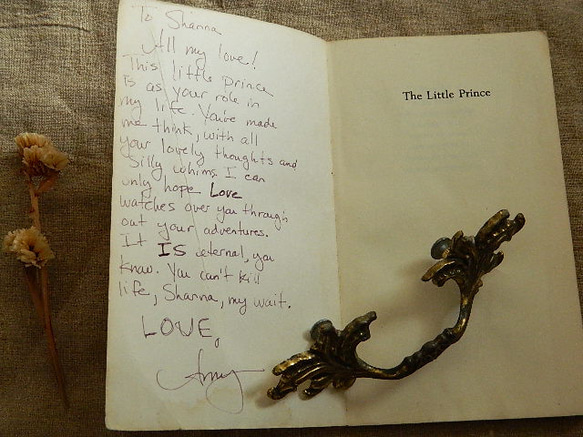 To Shanna
All my love!
This little prince
is as your role in
my life. You've made
me think, with all
your lovely thoughts and
silly whims. I can
only hope Love
watches over you through
out your adventures.
It IS eternal, you
know. You can't kill
life, Shanna, my wait.
LOVE,
Amy
The Little Prince